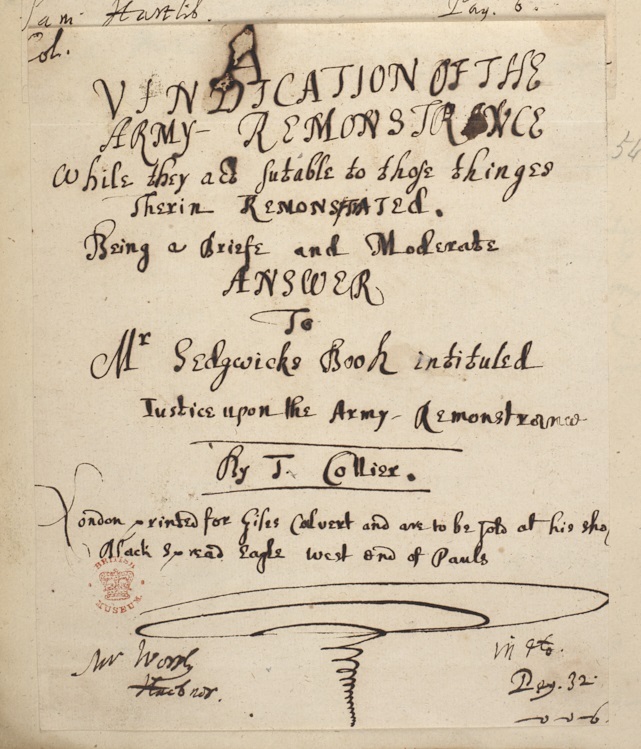 Sam: Hartlib. Pag. 6.
A
VINDICATION OF THE
ARMY- REMONSTRANCE
While they act sutable to those thinges
Therin REMONSTATED.
Being a Briefe and Moderate
ANSWER
To
Mr Sedgwicks Book intituled
Iustice upon the Army- Remonstrance
By T. Collier.
London printed for Giles Calvert and are to be sold at his sho
Black Spread Eagle West End of Pauls
BRITISH
MUSEUM
Mr in 4to.
Pag. 32.
54